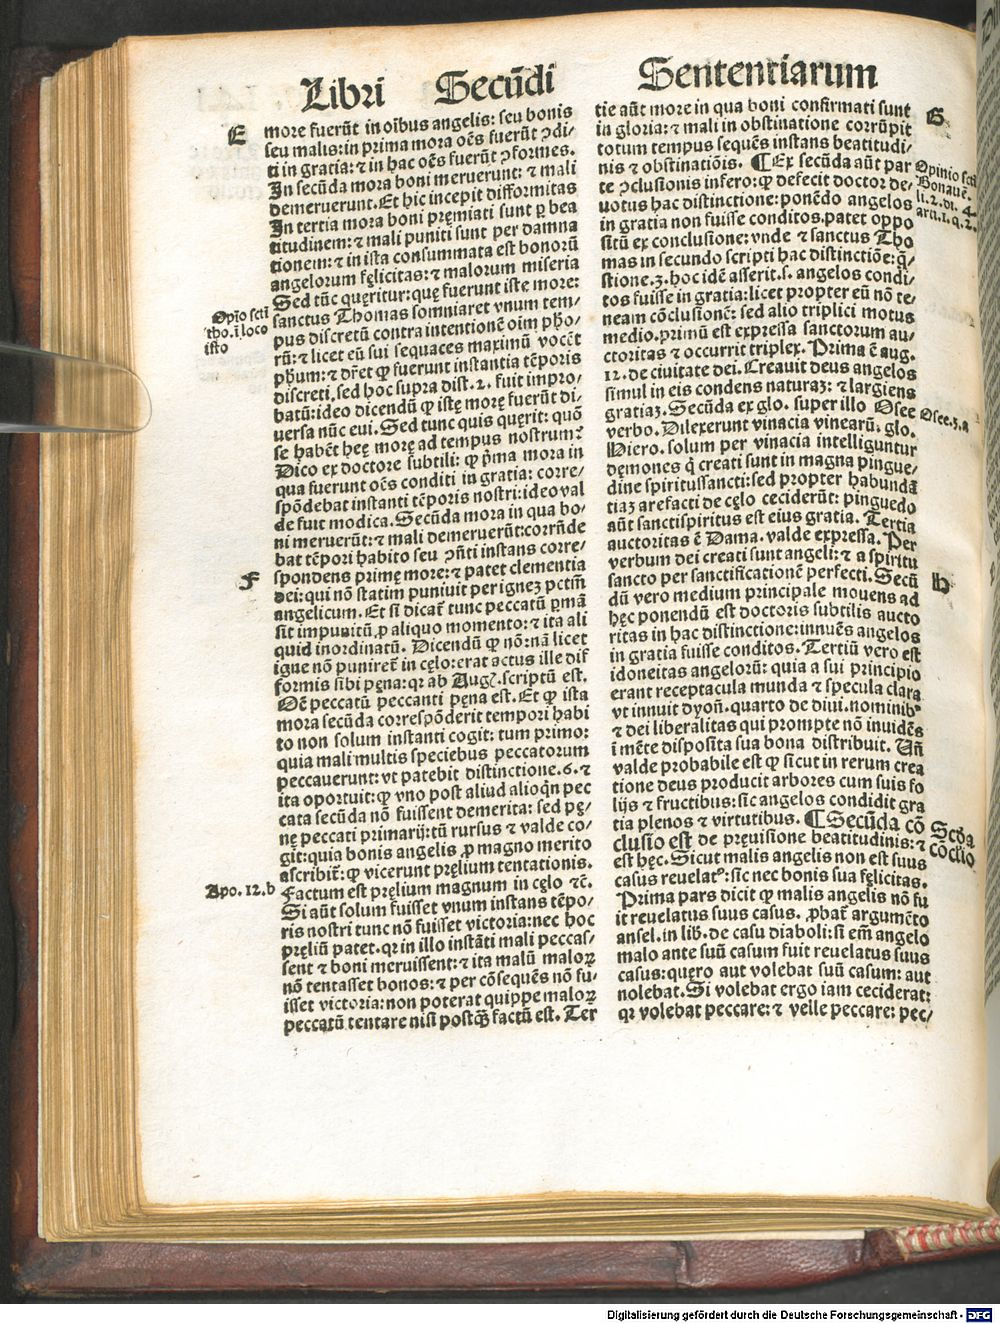 Libri Secūdi Sententiarum
E
more fuerūt in oībus angelis: seu bonis
seu malis: in prima mora oēs fuerūt ꝯdi/
ti in gratia: ⁊ in hac oēs fuerūt ꝯformes.
In secūda mora boni meruerunt: ⁊ mali
demeruerunt. Et hic incepit difformitas
In tertia mora boni pręmiati sunt ꝑ bea
titudinem: ⁊ mali puniti sunt per damna
tionem: ⁊ in ista consummata est bonorū
angelorum fęlicitas: ⁊ malorum miseria
Sed tūc quęritur: quę fuerunt istę more:
Opīo scti
tho. ī loco
isto
sanctus Thomas somniaret vnum tem/
pus discretū contra intentionē oīm pho/
rū: ⁊ licet eū sui sequaces maximū vocēt
phum: ⁊ dr̄et ꝙ fuerunt instantia tēporis
discreti, sed hoc supra dist. 2. fuit impro/
batū: ideo dicendū ꝙ istę morę fuerūt di/
uersa nūc eui. Sed tunc quis quęrit: quō
se habēt hęę morę ad tempus nostrum?
Dico ex doctore subtili: ꝙ pͥma mora in
qua fuerunt oēs conditi in gratia: corre/
spōdebat instanti tēporis nostri: ideo val
de fuit modica. Secūda mora in qua bo/
ni meruerūt: ⁊ mali demeruerūt: corrn̄de
bat tēpori habito seu ꝯn̄ti instans corre/
F
spondens primę more: ⁊ patet clementia
dei: qui nōn statim puniuit per ignez pctm̄
angelicum. Et si dicat̄ tunc peccatū ꝑmā
sit impunitū ꝓ aliquo momento: ⁊ ita ali
quid inordinatū. Dicendū ꝙ nō: nā licet
igne nō puniret̄ in cęlo: erat actus ille dif
formis sibi pęna: qꝛ ab Aug. scriptū est.
Oē peccatū peccanti pęna est. Et ꝙ ista
mora secūda correspōderit tempori habi
to non solum instanti cogit: tum primo:
quia mali multis speciebus peccatorum
peccauerunt: vt patebit distinctione. 6. ⁊
ita oportuit: ꝙ vno post aliud alioqͥn pec
cata secūda nō fuissent demerita: sed pę/
nę peccati primarij: tū rursus ⁊ valde co/
git: quia bonis angelis ꝓ magno merito
ascribit̄: ꝙ vicerunt pręlium tentationis.
Apo. 12. b
Factum est pręlium magnum in cęlo ⁊c̄.
Si aūt solum fuisset vnum instans tēpo/
ris nostri tunc nō fuisset victoria: nec hoc
pręliū patet. qꝛ in illo instāti mali peccas/
sent ⁊ boni meruissent: ⁊ ita malū maloꝝ
nō tentasset bonos: ⁊ per cōsequēs nō fu/
isset victoria: non poterat quippe maloꝝ
peccatū tentare nisi postq̄ȝ factū est. Ter
tie aūt more in qua boni confirmati sunt
G
in gloria: ⁊ mali in obstinatione corrūpit
totum tempus sequēs instans beatitudi/
nis ⁊ obstinatiōis. ¶ Ex secūda aūt par
Opinio scti
Bonauē.
li. 2. di. 4.
arti. 1. q. 2.
te ꝯclusionis infero: ꝙ defecit doctor de/
uotus hac distinctione: ponēdo angelos
in gratia non fuisse conditos. patet oppo
sitū ex conclusione: vnde ⁊ sanctus Tho
mas in secundo scripti hac distinctiōe: q̄/
stione. 3. hoc idē asserit. s. angelos condi/
tos fuisse in gratia: licet propter eū nō te/
neam cōclusionē: sed alio triplici motus
medio. primū est expressa sanctorum au/
ctoritas ⁊ occurrit triplex. Prima ē aug.
12. de ciuitate dei. Creauit deus angelos
simul in eis condens naturaȝ: ⁊ largiens
gratiaȝ. Secūda ex glo. super illo Osee
Osee. 3. a
verbo. Dilexerunt vinacia vinearū. glo.
Hiero. solum per vinacia intelliguntur
dęmones qͥ creati sunt in magna pingue/
dine spiritussancti: sed propter habundā
tiaȝ arefacti de cęlo ceciderūt: pinguedo
aūt sanctispiritus est eius gratia. Tertia
auctoritas ē Dama. valde expressa. Per
verbum dei creati sunt angeli: ⁊ a spiritu
sancto per sanctificationē perfecti. Secū
H
dū vero medium principale mouens ad
hęc ponendū est doctoris subtilis aucto
ritas in hac distinctione: innuēs angelos
in gratia fuisse conditos. Tertiū vero est
idoneitas angelorū: quia a sui principio
erant receptacula munda ⁊ specula clara
vt innuit dyoñ. quarto de diui. nominibꝰ
⁊ dei liberalitas qui prompte nō inuidēs
ī mēte disposita sua bona distribuit. Uñ
valde probabile est ꝙ sicut in rerum crea
tione deus producit arbores cum suis fo
lijs ⁊ fructibus: sic angelos condidit gra
tia plenos ⁊ virtutibus. ¶ Secūda cō
Scd̄a
cōclīo
clusio est de pręuisione beatitudinis: ⁊
est hęc. Sicut malis angelis non est suus
casus reuelatꝰ: sic nec bonis sua fęlicitas.
Prima pars dicit ꝙ malis angelis nō fu
it reuelatus suus casus. ꝓbat̄ argumēto
ansel. in lib. de casu diaboli: si em̄ angelo
malo ante suū casum fuit reuelatus suus
casus: quęro aut volebat suū casum: aut
nolebat. Si volebat ergo iam ceciderat:
qꝛ volebat peccare: ⁊ velle peccare: pec/
Digitalisierung gefördert durch die Deutsche Forschungsgemeinschaft - DFG